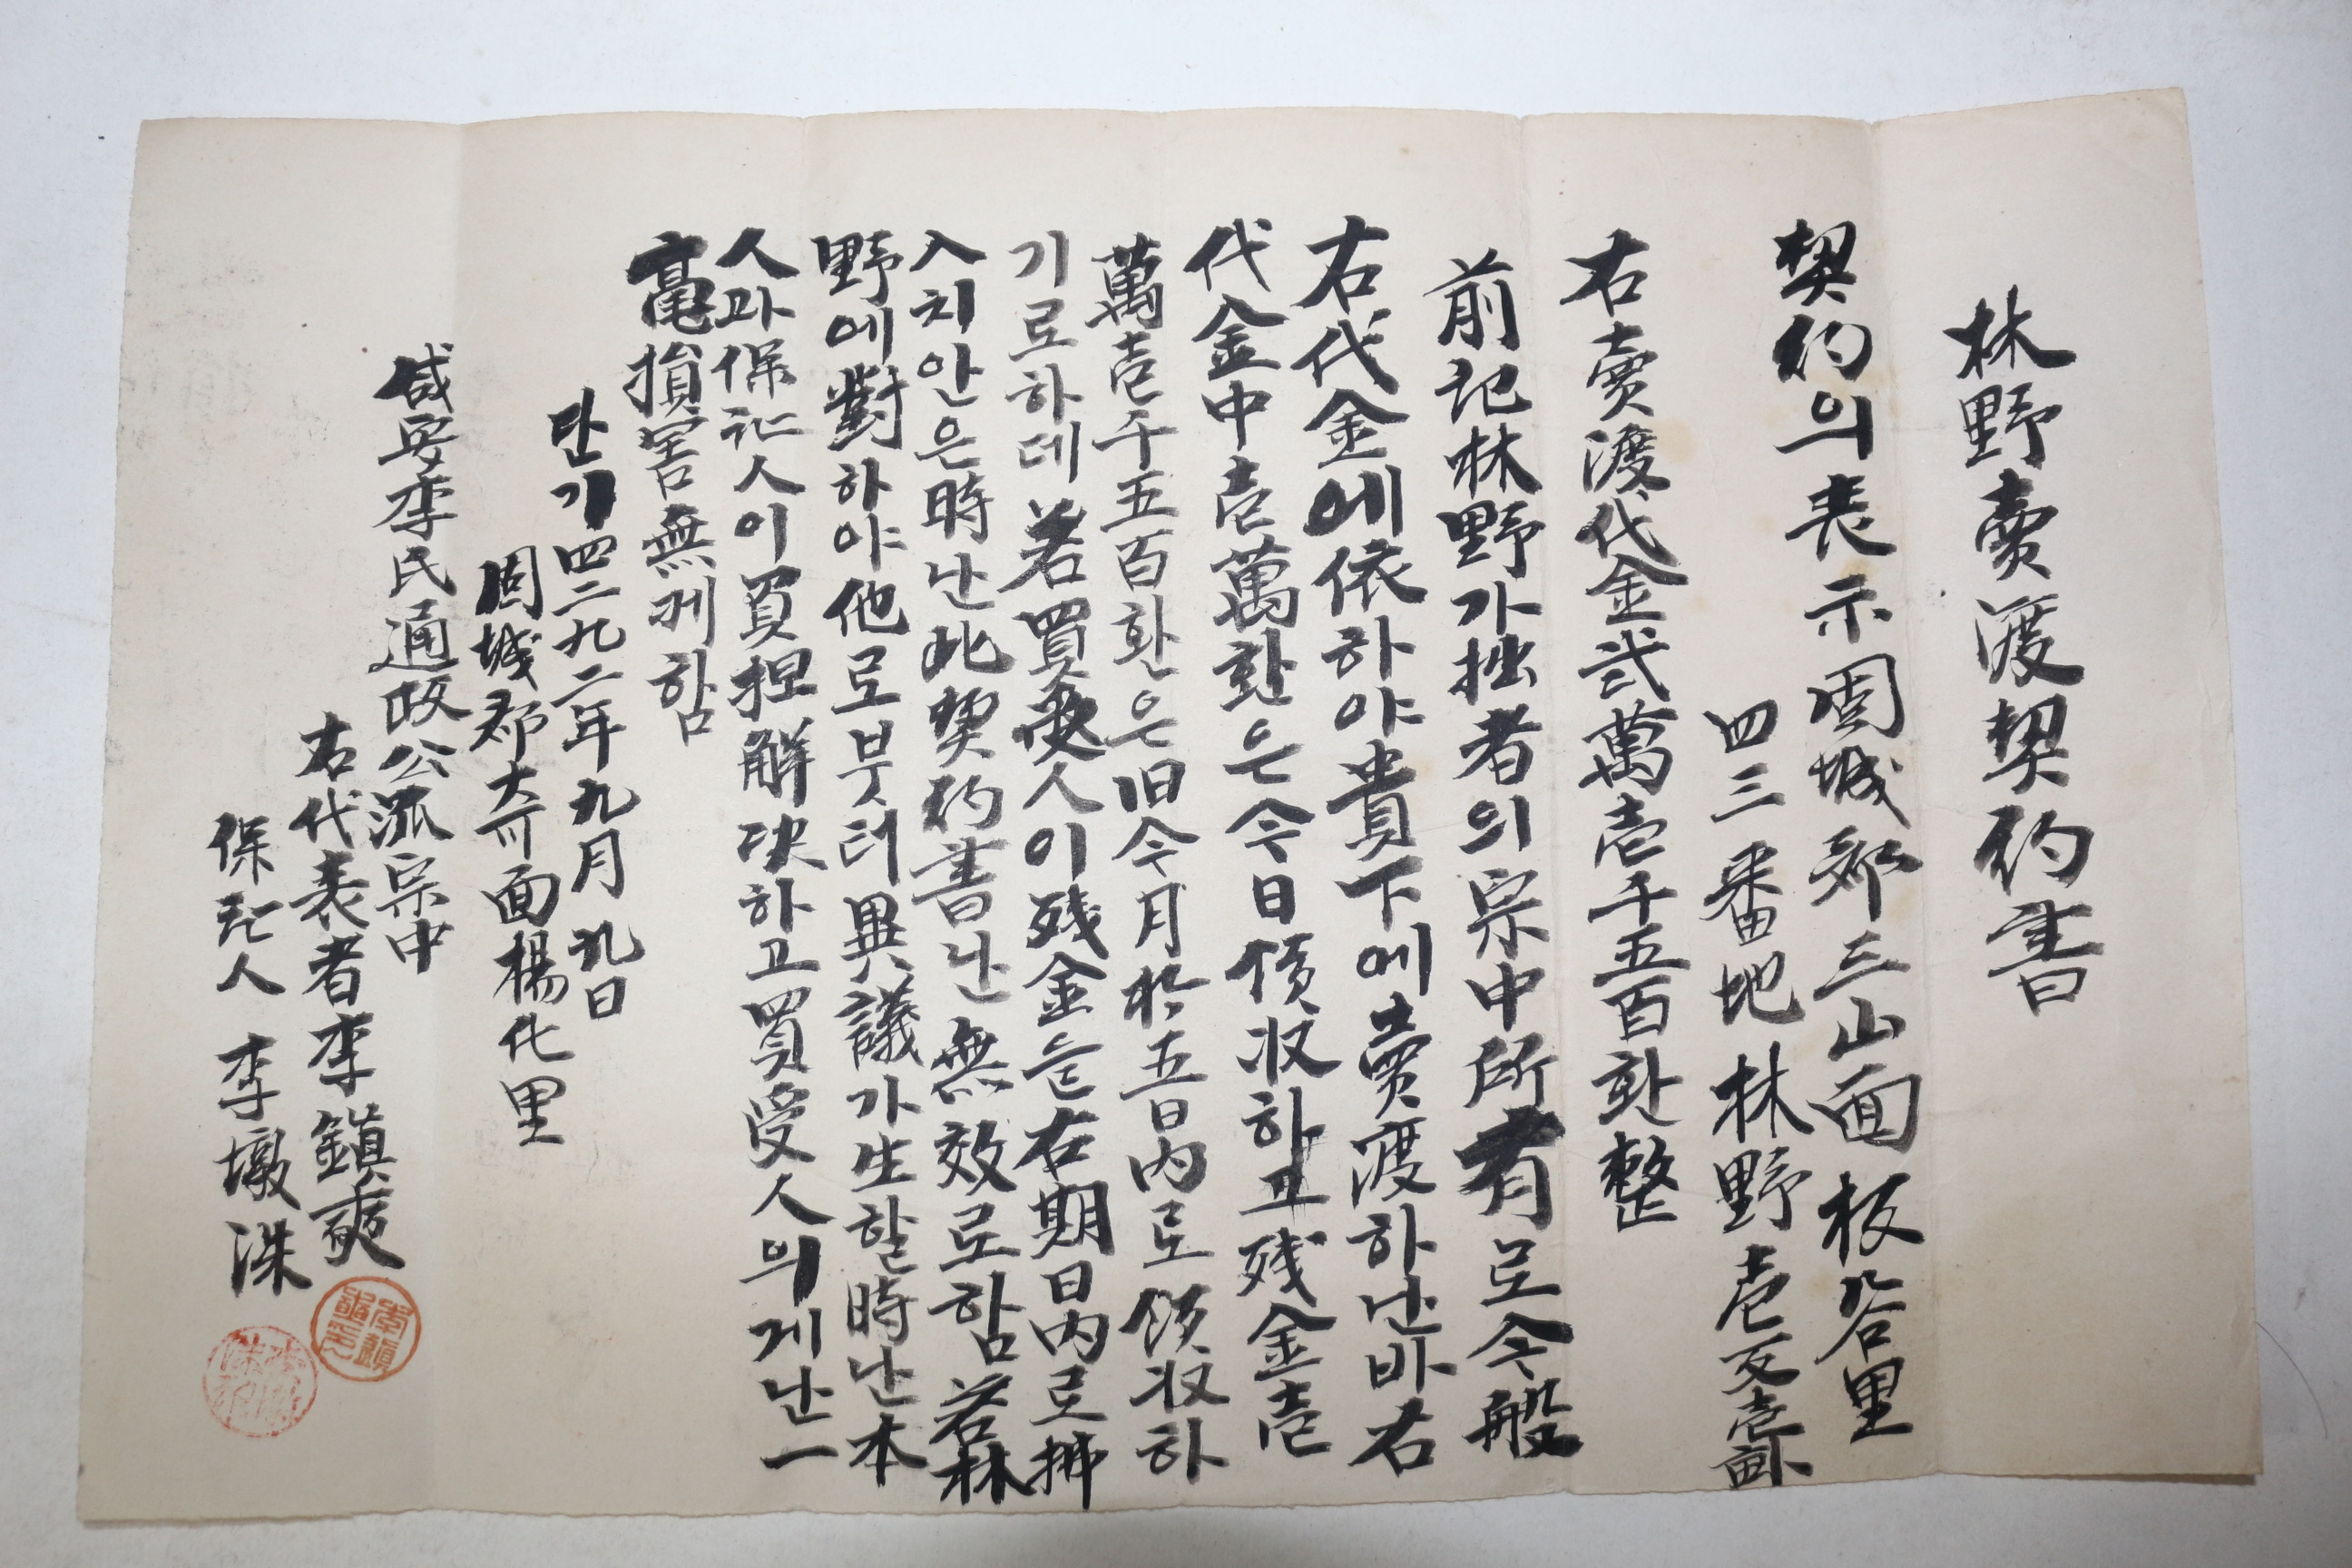 林野賣渡契約書
契約의表示固城郡三山面板谷里
四三番地林野壱反壱畝
右賣渡代金弐萬壱千五百환整
前記林野가拙者의宗中所有로今般
右代金에依하야貴下에賣渡하난바右
代金中壱萬환은今日領收하고残金壱
萬壱千五百환은旧今月於五日內로領收하
기로하데若買受人이残金을右期日內로拂
入치안은時난此契約書난無效로함若林
野에對하야他로부터異議가生할時난本
人과保証人이負担解决하고買受人의게난一
毫損害無케함
단기四二九二年九月九日
固城郡大可面楊化里
咸安李氏通政公派宗中
右代表者李鎮奭
保証人 李墩洙